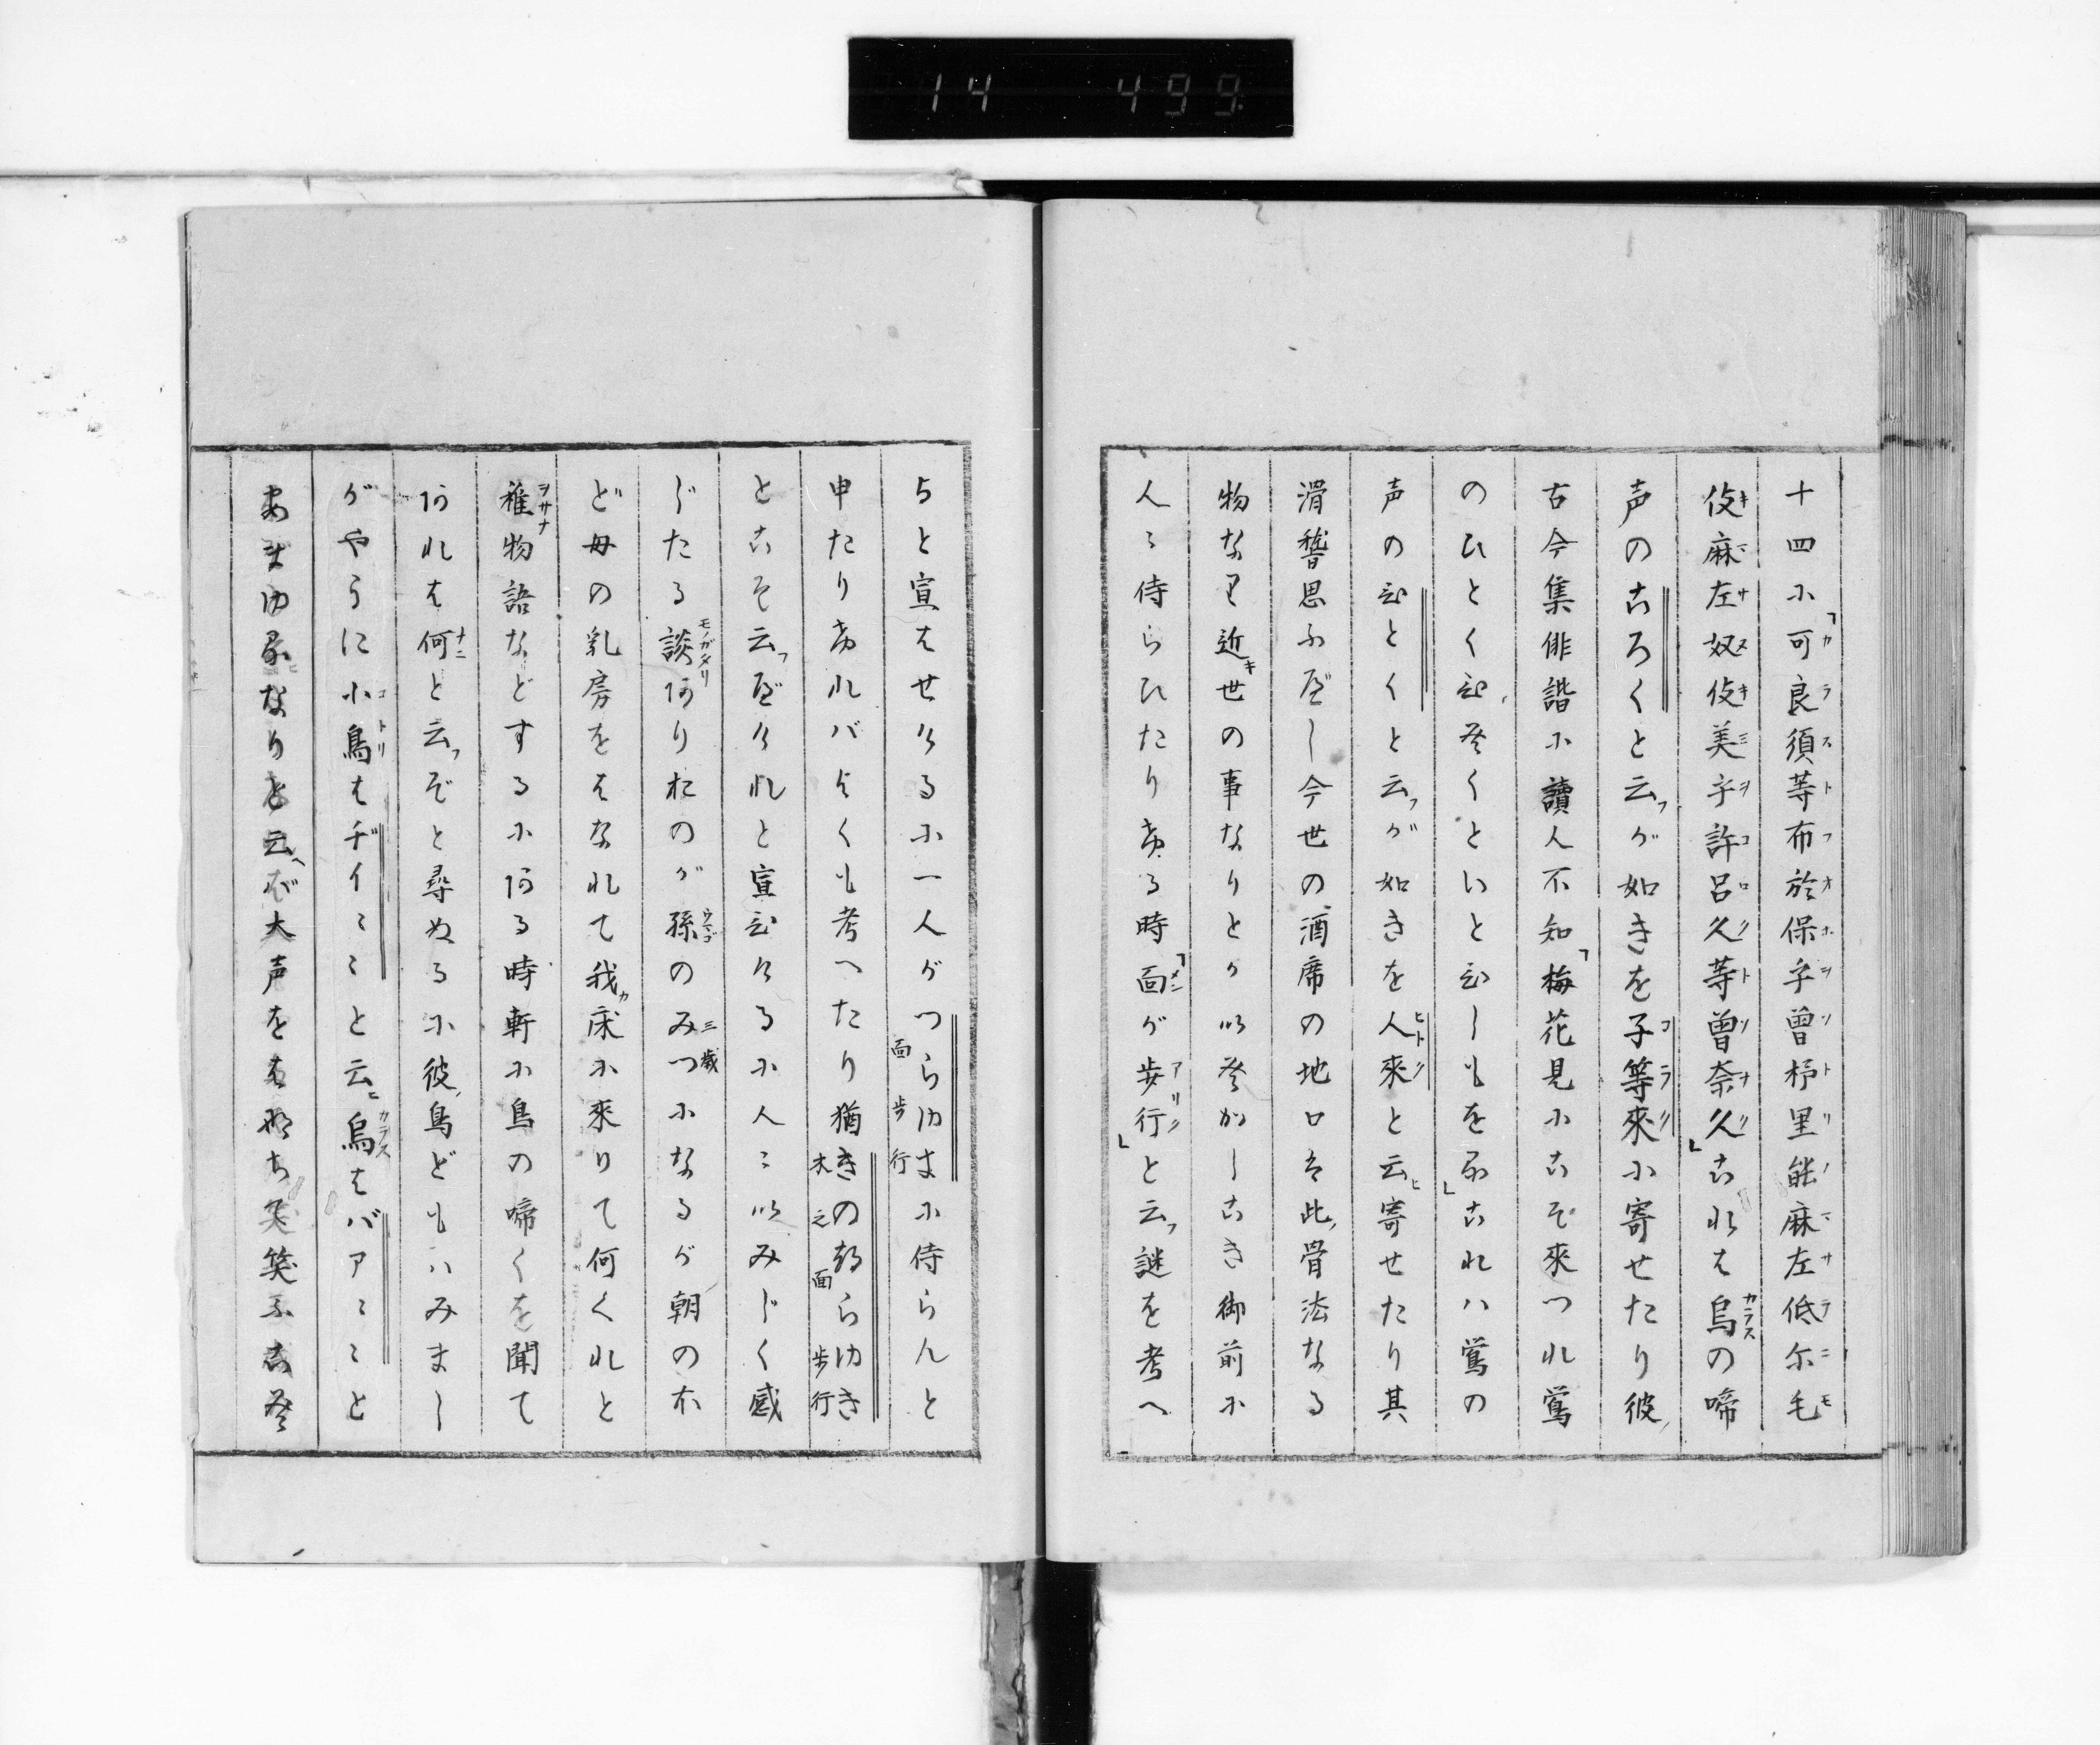 14 499
十四小「可良須等布於保乎曽杼里能麻左低尓毛
伎麻左奴伎美乎許呂久等曽奈久」古れハ烏の啼
声の古ろくと云フが如きを子等來小寄せたり彼ノ
古今集俳諧小讀人不知「梅花見小古そ來つれ鶯
のひとくひとくといとひしもをる」古れハ鶯の
声のひとくと云フが如きを人來と云ヒ寄せたり其
滑稽思ふべし今世の酒席の地口は此ノ骨法なる
物なり近キ世の事なりとかいとかしこき御前小
人々侍らひたりける時「面が歩行」と云フ謎を考へ
よと宣はせけるに一人がつらゆきに侍らんと
申たりければよくも考へたり猶きのつらゆき
とこそ云フべけれと宣ひけるに人々いみじく感
じたる談ありおのが孫のみつになるが朝のほ
ど母の乳房をはなれて我ガ床に來りて何くれと
稚物語などするにある時軒に鳥の啼くを聞て
あれは何と云フぞと尋ぬるに彼ノ鳥どもハみまし
がやうに小鳥はヂイ〻〻と云ヒ烏はバア〻〻と
大声をはなち笑